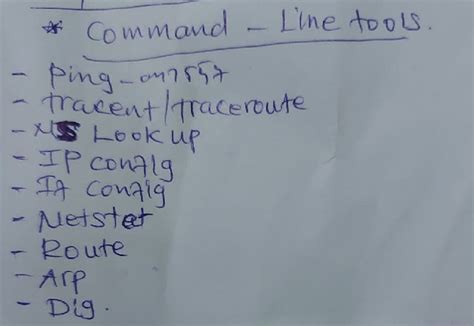 * Command - Line tools.
- Ping
- tracent/traceroute
- NS Look up
- IP config
- If config
- Netstat
- Route
- Arp
- Dig.